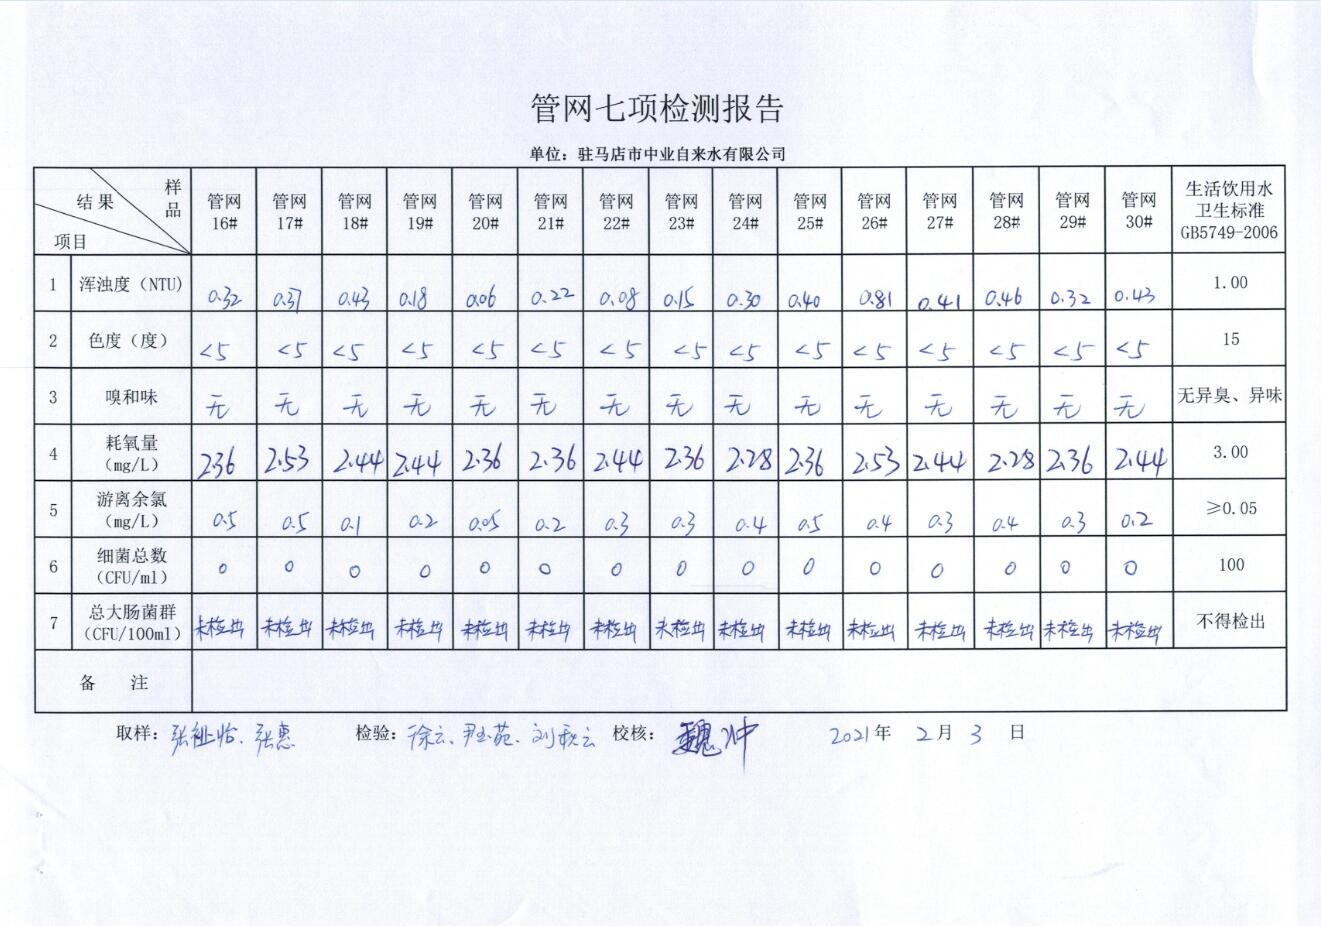 管网七项检测报告
单位：驻马店市中业自来水有限公司
结果 样品 项目 管网16# 管网17# 管网18# 管网19# 管网20# 管网21# 管网22# 管网23# 管网24# 管网25# 管网26# 管网27# 管网28# 管网29# 管网30# 生活饮用水卫生标准GB5749-2006
1 浑浊度（NTU） 0.32 0.37 0.43 0.18 0.06 0.22 0.08 0.15 0.30 0.40 0.81 0.41 0.46 0.32 0.43 1.00
2 色度（度） <5 <5 <5 <5 <5 <5 <5 <5 <5 <5 <5 <5 <5 <5 <5 15
3 嗅和味 无 无 无 无 无 无 无 无 无 无 无 无 无 无 无 无异臭、异味
4 耗氧量（mg/L） 2.36 2.53 2.44 2.44 2.36 2.36 2.44 2.36 2.28 2.36 2.53 2.44 2.28 2.36 2.44 3.00
5 游离余氯（mg/L） 0.5 0.5 0.1 0.2 0.05 0.2 0.3 0.3 0.4 0.5 0.4 0.3 0.4 0.3 0.2 ≥0.05
6 细菌总数（CFU/ml） 0 0 0 0 0 0 0 0 0 0 0 0 0 0 0 100
7 总大肠菌群（CFU/100ml） 未检出 未检出 未检出 未检出 未检出 未检出 未检出 未检出 未检出 未检出 未检出 未检出 未检出 未检出 未检出 不得检出
备 注
取样：张 、张惠 检验：徐云、尹玉苑、刘 云 校核：魏冲 2021年 2月 3 日